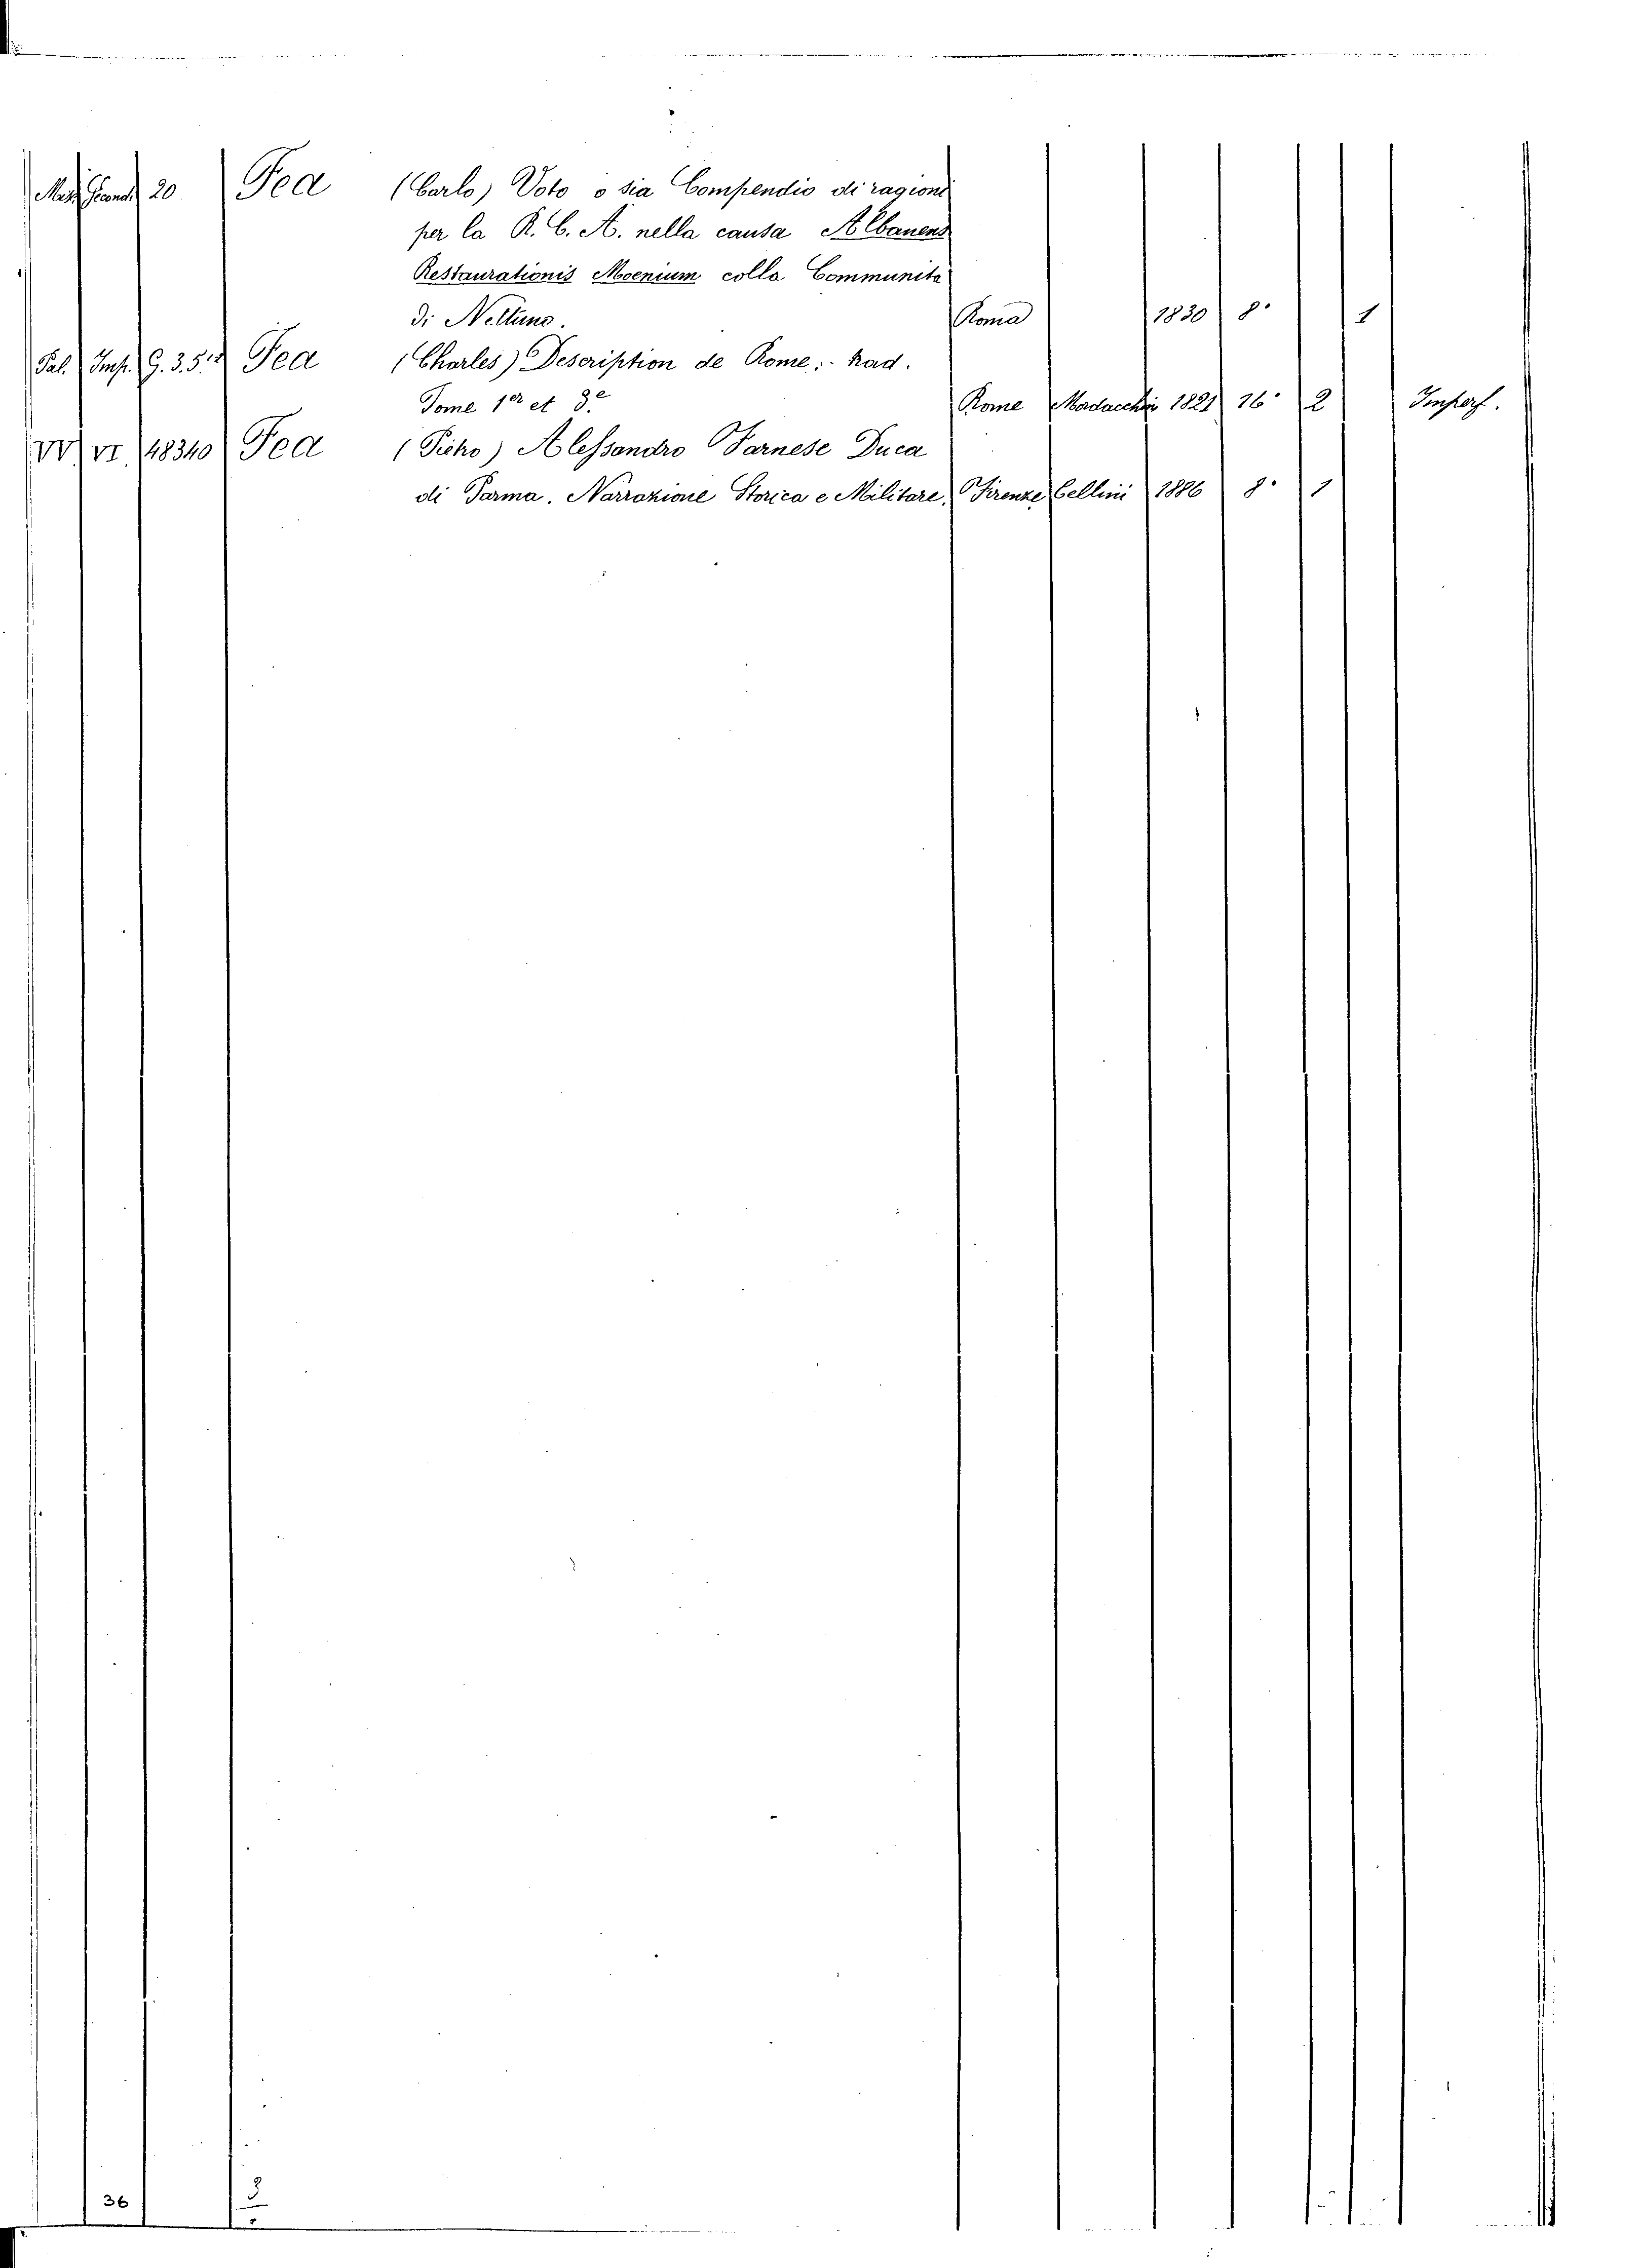 20. Fea (Carlo) Voto o sia Compendio di ragioni
per la R. C. A. nella causa Albanens
Restaurationis Moenium colla Communità
di Nettuno. Roma 1830 8° 1
Pal. Imp. G. 3.5. Fea (Charles) Description de Rome,- trad.
Tome 1er et 3e Rome 1821 16° 2 Imperf.
VI 48340 Fea (Pietro) Alessandro Farnese Duca
di Parma. Narrazione Storica e Militare. Firenze Cellini 1886 8° 1
36 3